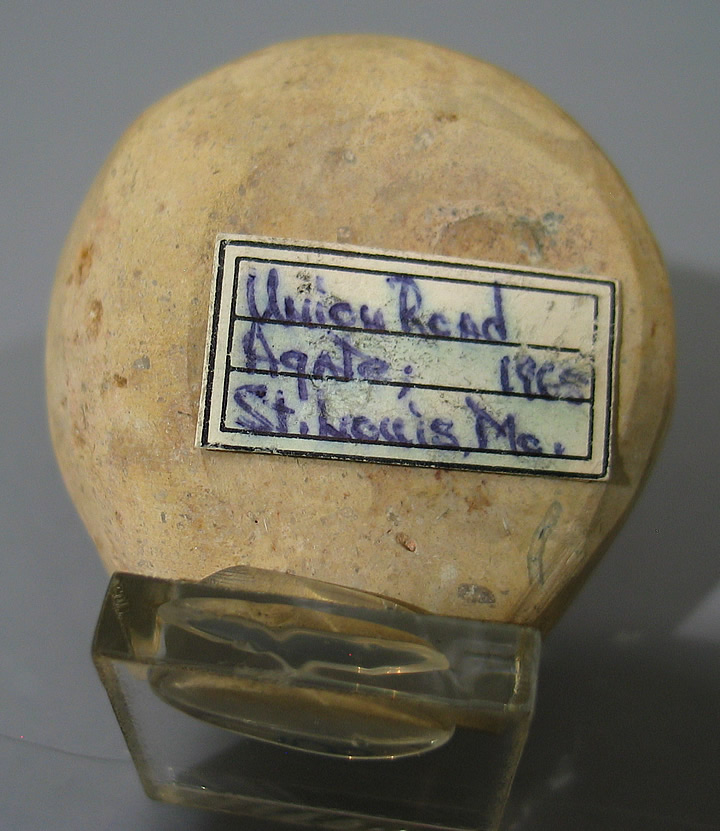 Union Road
Agate; 1965
St. Louis, Mo.